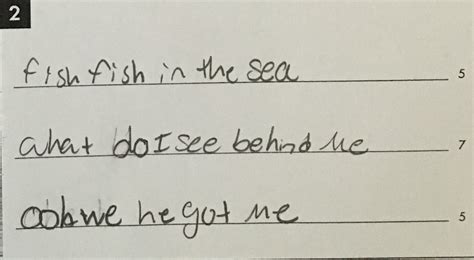 2
fish fish in the sea 5
what do I see behind Me 7
he got Me 5